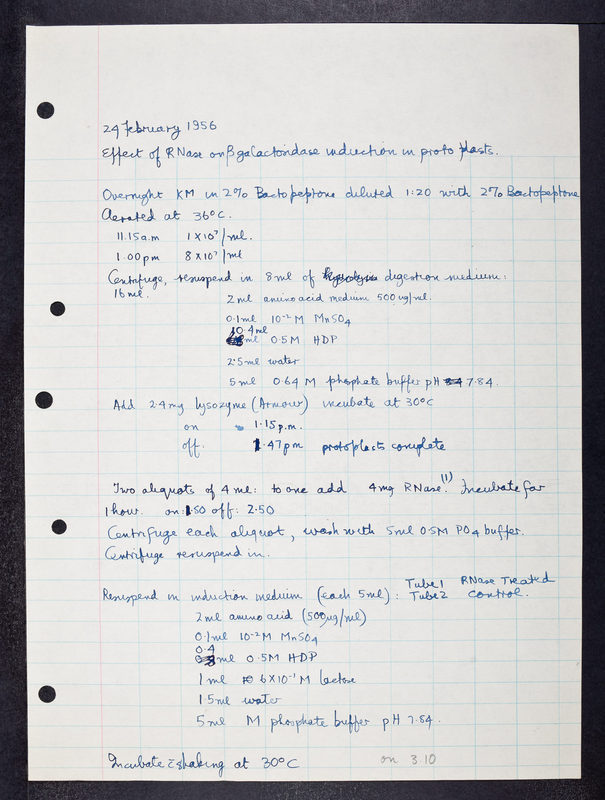 24 February 1956
Effect of RNase on β galactosidase induction in proto plasts.
Overnight KM in 2% Bactopeptone diluted 1:20 with 2% Bactopeptone
Aerated at 36°C.
11.15 a.m 1 x 10⁷/ml.
1.00 pm 8 x 10⁷/ml
Centrifuge, resuspend in 8 ml of digestion medium:
16 ml.
2 ml amino acid medium 500 ug/ml.
0.1 ml 10⁻² M MnSO4
0.4 ml 0.5M HDP
2.5 ml water
5 ml 0.64 M phosphate buffer pH 7.84.
Add 2.4 mg lysozyme (Armour) incubate at 30°C
on 1.15 p.m.
off. 1.47 pm protoplasts complete
Two aliquots of 4 ml: to one add 4 mg RNase.(1) Incubate for
1 hour. on: 1.50 off: 2.50
Centrifuge each aliquot, wash with 5 ml 0.5M PO4 buffer.
Centrifuge resuspend in.
Resuspend in induction medium (each 5 ml): Tube 1 RNase Treated
Tube 2 control.
2 ml amino acid (500 ug/ml)
0.1 ml 10⁻² M MnSO4
0.4 ml 0.5M HDP
1 ml 6 x 10⁻¹ M lactose
1.5 ml water
5 ml M phosphate buffer pH 7.84.
Incubate c̄ shaking at 30°C on 3.10